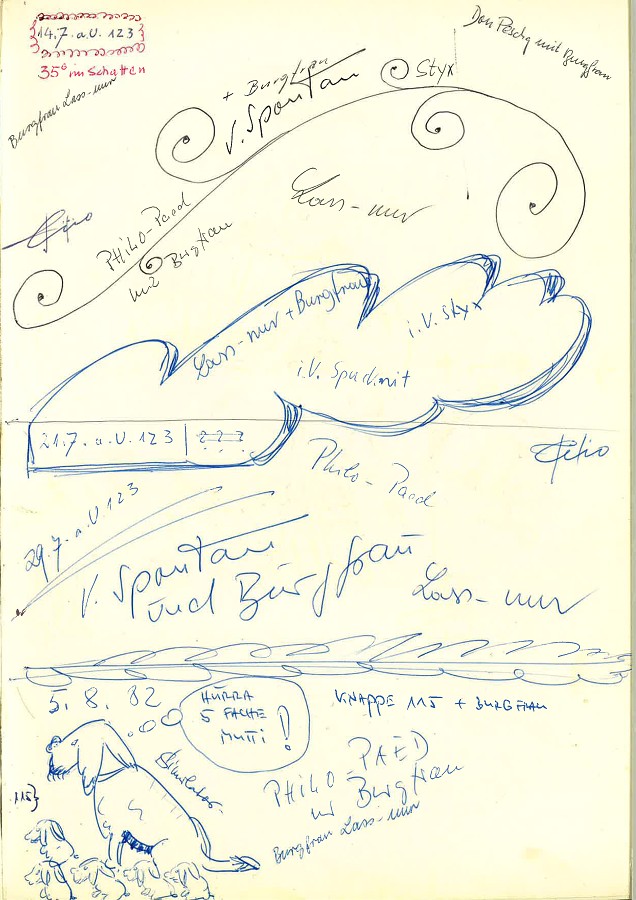 14.7. a.U. 123
35° im Schatten
Burgfrau Lass-nur
+ Burgfrau
V. Spontan
Styx
mit Burgfrau
Lass-nur
PHiLO-Paed
mit Burgfrau
Lass-nur + Burgfrau
i.V. Styx
i.V.
21.7. a.U. 123
Philo-Paed
29.7. a.U. 123
V. Spontan
und Burgfrau
Lass-nur
5. 8. 82
HURRA
5 FACHE
MUTTi!
KNAPPE 115 + BURGFRAU
115}
PHiLO-PAED
Burgfrau
Burgfrau Lass-nur